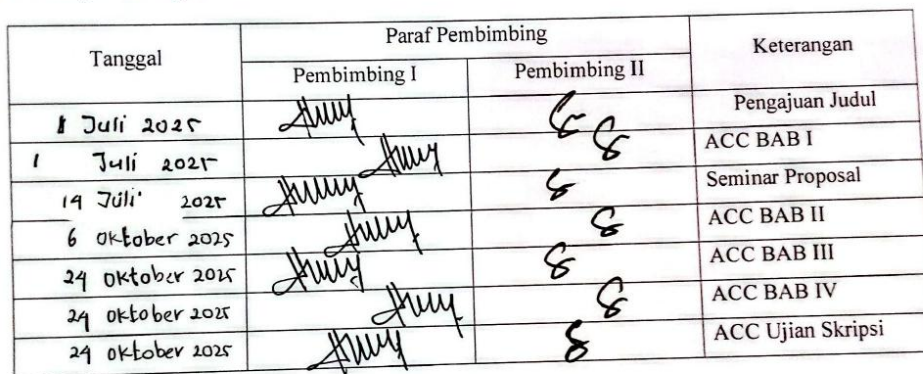 Tanggal Paraf Pembimbing Keterangan
Pembimbing I Pembimbing II
1 Juli 2025 Pengajuan Judul
1 Juli 2025 ACC BAB I
14 Juli 2025 Seminar Proposal
6 Oktober 2025 ACC BAB II
24 Oktober 2025 ACC BAB III
24 Oktober 2025 ACC BAB IV
24 Oktober 2025 ACC Ujian Skripsi